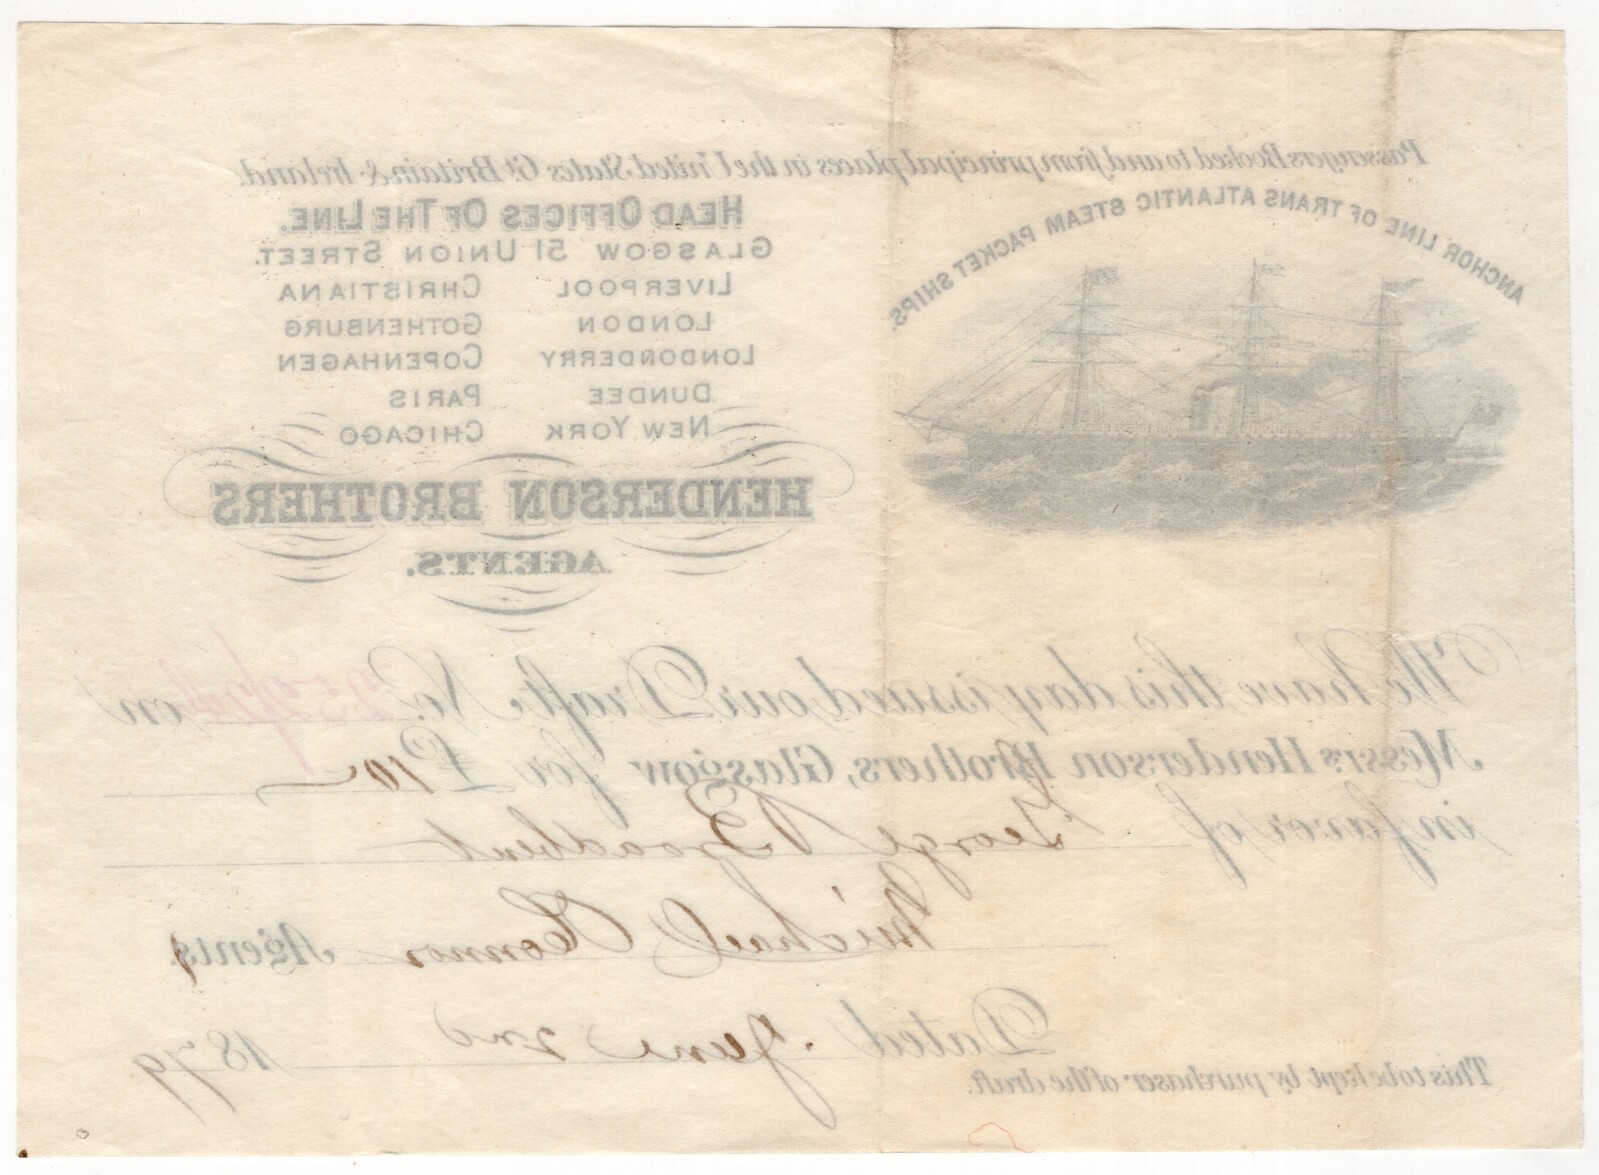 Passengers Booked to and from principal places in the United States Gt. Britain & Ireland.
ANCHOR LINE OF TRANS ATLANTIC STEAM PACKET SHIPS.
HEAD OFFICES OF THE LINE.
GLASGOW 51 UNION STREET.
LIVERPOOL CHRISTIANA
LONDON GOTHENBURG
LONDONDERRY COPENHAGEN
DUNDEE PARIS
NEW YORK CHICAGO
HENDERSON BROTHERS
AGENTS.
We have this day issued our Draft No. on
Messrs Henderson Brothers, Glasgow for £10
in favor of George Broadbent
Michael Connor Agents
Dated June 2nd 1879
This to be kept by purchaser of the draft.